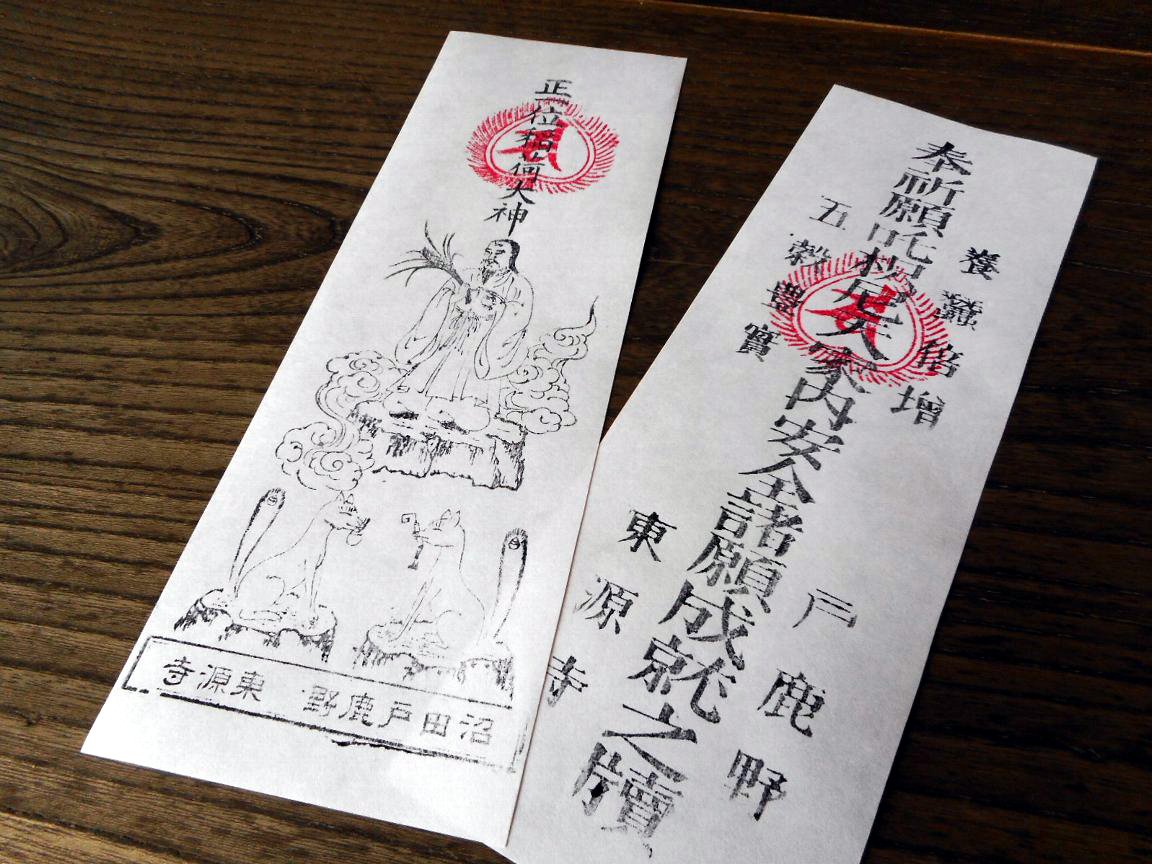 正一位稲荷大神
沼田戸鹿野 東源寺
養蠶倍増
奉祈願吒枳尼天家内安全諸願成就之牘
五穀豊實
戸鹿野
東源寺